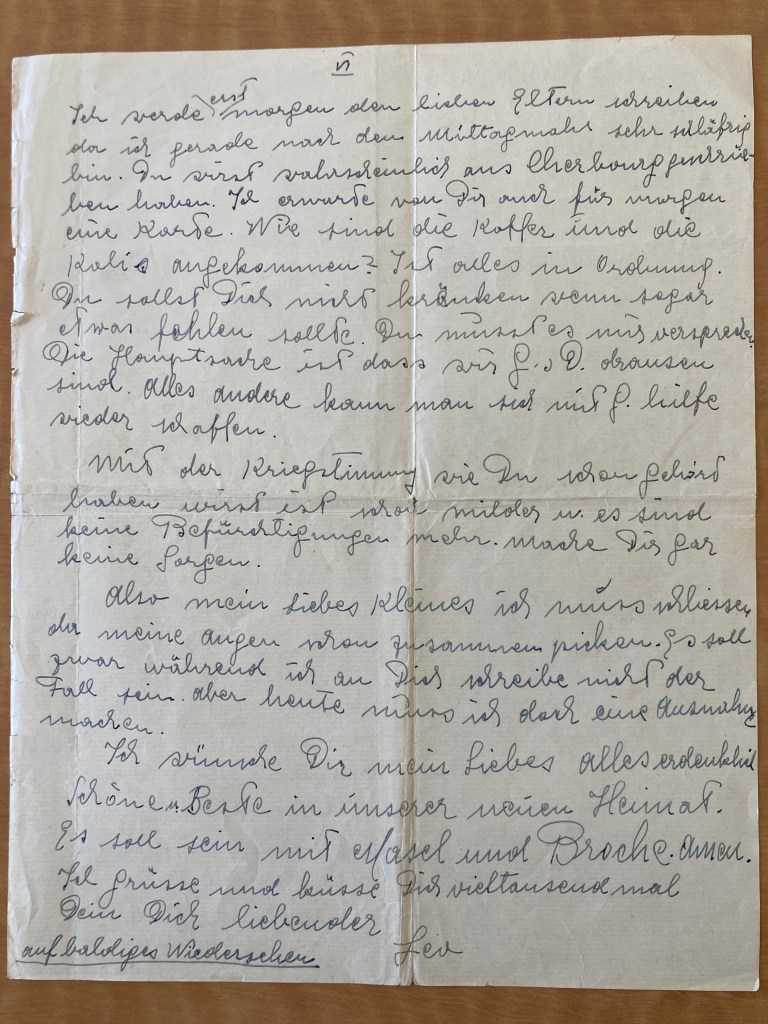 VI
Ich werde erst morgen den lieben Eltern schreiben
da ich gerade nach dem Mittagmahl sehr schläfrig
bin. Du wirst wahrscheinlich aus Cherbourg geschrie-
ben haben. Ich erwarte von Dir auch für morgen
eine Karte. Wie sind die Koffer und die
Kolis angekommen? Ist alles in Ordnung.
Du sollst Dich nicht kränken wenn sogar
etwas fehlen sollte. Du musst es mir versprechen.
Die Hauptsache ist dass wir G. s D. drausen
sind. Alles andere kann man sich mit G. hilfe
wieder schaffen.
Mit der Kriegstimmung wie Du schon gehört
haben wirst ist schon milder u. es sind
keine Befürchtigungen mehr. mache Dir gar
keine Sorgen.
Also mein Liebes Kleines ich muss schliessen,
da meine Augen schon zusammen picken. Es soll
zwar während ich an Dich schreibe nicht der
Fall sein. aber heute muss ich doch eine Ausnahme
machen.
Ich wünsche Dir mein Liebes alles erdenklich
Schöne u. Beste in unserer neuen Heimat.
Es soll sein mit Masel und Broche. Amen.
Ich grüsse und küsse Dich vieltausendmal
Dein Dich liebender
Leo
auf baldiges Wiedersehen